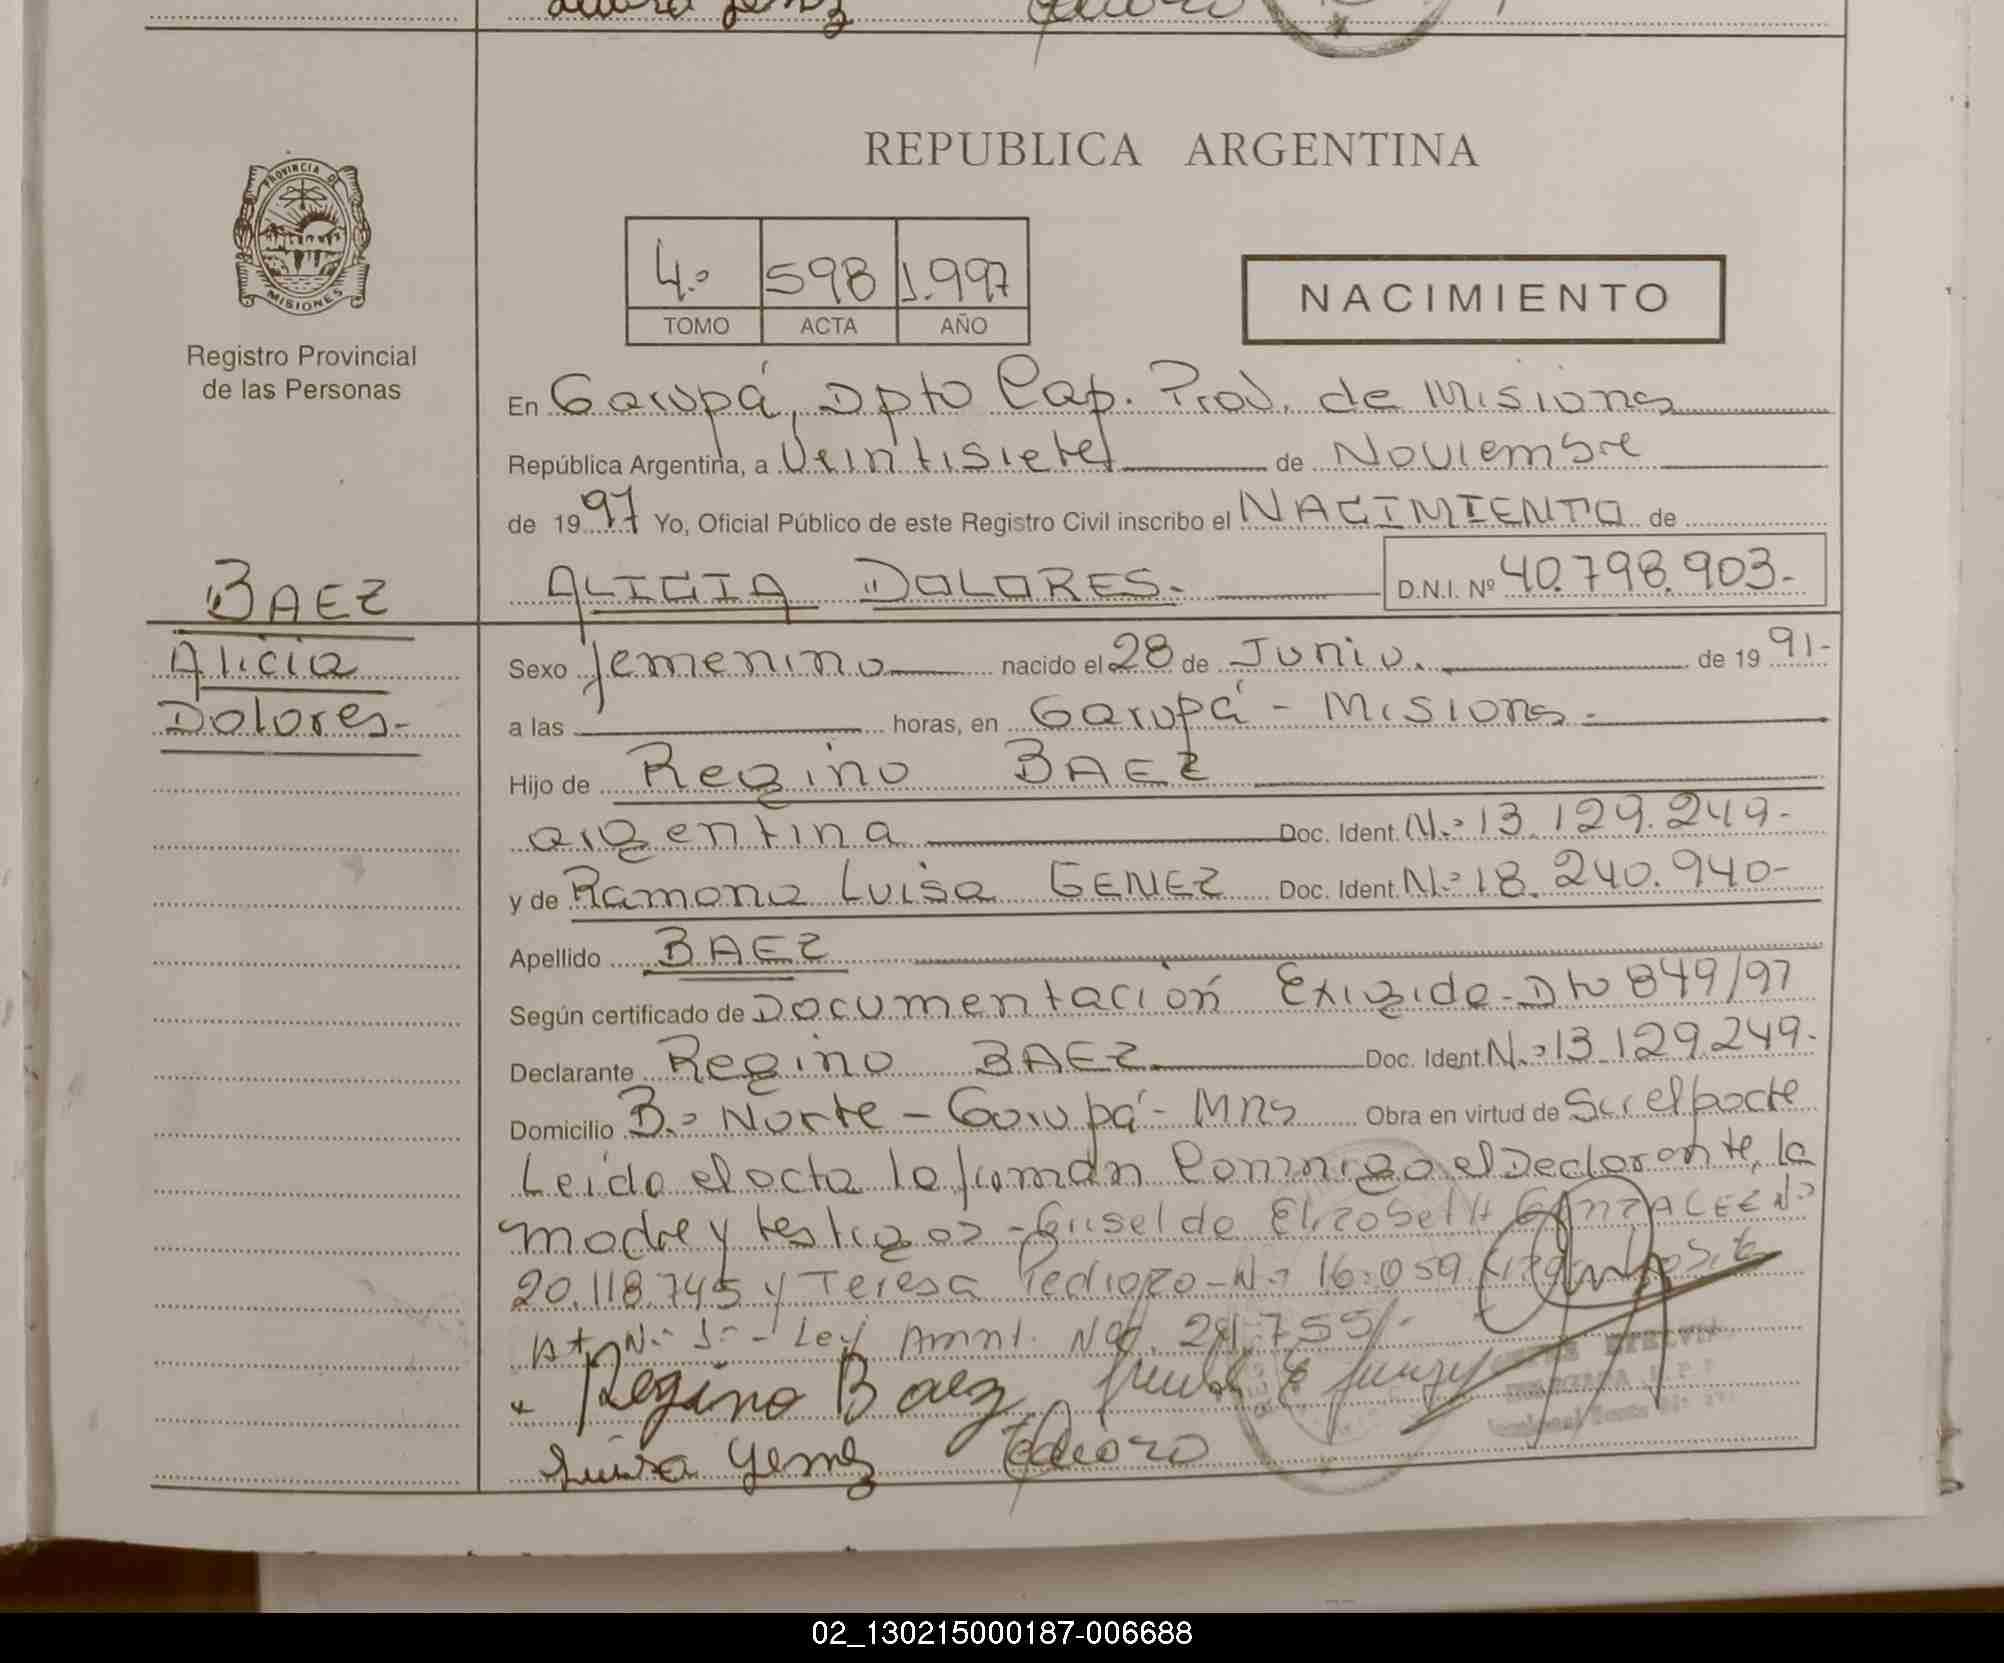 REPUBLICA ARGENTINA
PROVINCIA DE
MISIONES
Registro Provincial
de las Personas
4.º 598 1.997
TOMO ACTA AÑO
NACIMIENTO
En Garupá, Dpto Cap. Prov. de Misiones
República Argentina, a Veintisiete de Noviembre
de 1997 Yo, Oficial Público de este Registro Civil inscribo el NACIMIENTO de
BAEZ
ALICIA DOLORES.- D.N.I. Nº 40.798.903-
Alicia
Dolores-
Sexo femenino nacido el 28 de Junio. de 1991-
a las horas, en Garupá - Misiones-
Hijo de Regino BAEZ
argentina Doc. Ident. N.º 13.129.249-
y de Ramona Luisa GENEZ Doc. Ident. N.º 18.240.940-
Apellido BAEZ
Según certificado de Documentación Exigida - Dto 849/97
Declarante Regino BAEZ Doc. Ident. N.º 13.129.249-
Domicilio B.º Norte - Garupá - Mnes Obra en virtud de Ser el padre
Leída el acta la firman conmigo el Declarante, la
madre y testigos - Griselda Elizabeth GONZALEZ Nº
20.118.745 y Teresa Pedrozo - N.º 16.059
Nº 1º - Ley Amnt. Nac. 24.755/-
Regino Baez
Luisa Genez Pedrozo
02_130215000187-006688